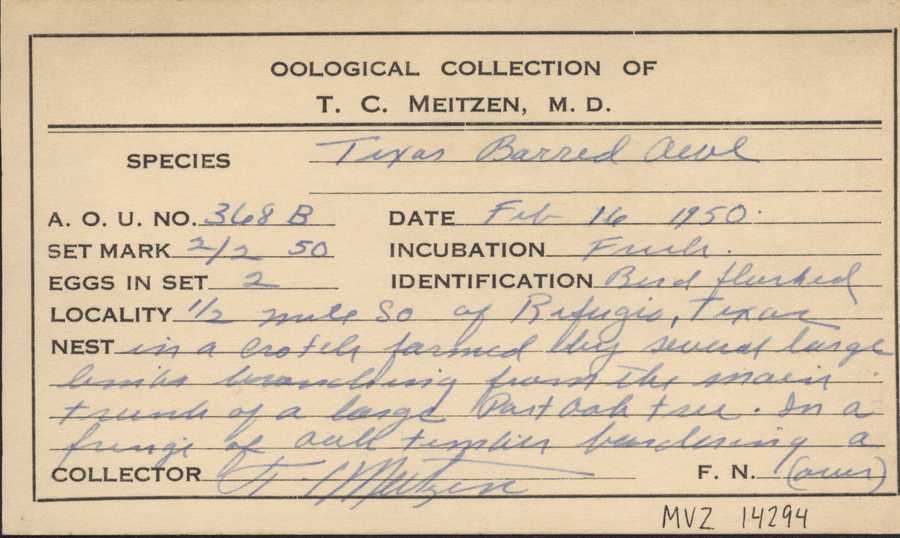 OOLOGICAL COLLECTION OF
T. C. MEITZEN, M. D.
SPECIES Texas Barred Owl
A. O. U. NO. 368 B DATE Feb 16 1950.
SET MARK 2/2 50 INCUBATION Fresh.
EGGS IN SET 2 IDENTIFICATION Bird flushed
LOCALITY 1/2 mile So of Refugio, Texas
NEST in a crotch formed by several large
limbs branching from the main
trunk of a large Post Oak tree. In a
fringe of oak timber bordering a
COLLECTOR Meitzen F. N. (over)
MVZ 14294